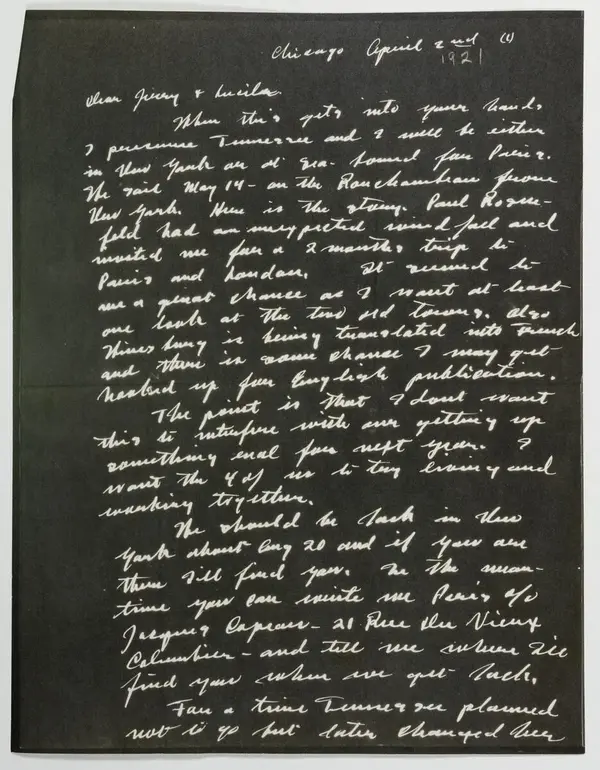 Chicago April 2nd (1)
1921
Dear Jerry & Lucile.
When this gets into your hands
I presume Tennessee and I will be either
in New York or at sea - bound for Paris.
We sail May 14 - on the Rochambeau from
New York. Here is the story. Paul Rosen-
feld had an unexpected wind fall and
invited me for a 2 months trip to
Paris and London. It seemed to
me a great chance as I want at least
one look at the two old towns. Also
Winesburg is being translated into French
and there is some chance I may get
hooked up for English publication.
The point is that I dont want
this to interfere with our getting up
something real for next year. I
want the 4 of us to try living and
working together.
We should be back in New
York about Aug 20 and if you are
there I'll find you. In the mean-
time you can write me Paris c/o
Jacques Copeau - 21 Rue Du Vieux
Columbier - and tell me where I'll
find you when we get back.
For a time Tennessee planned
not to go but later changed her